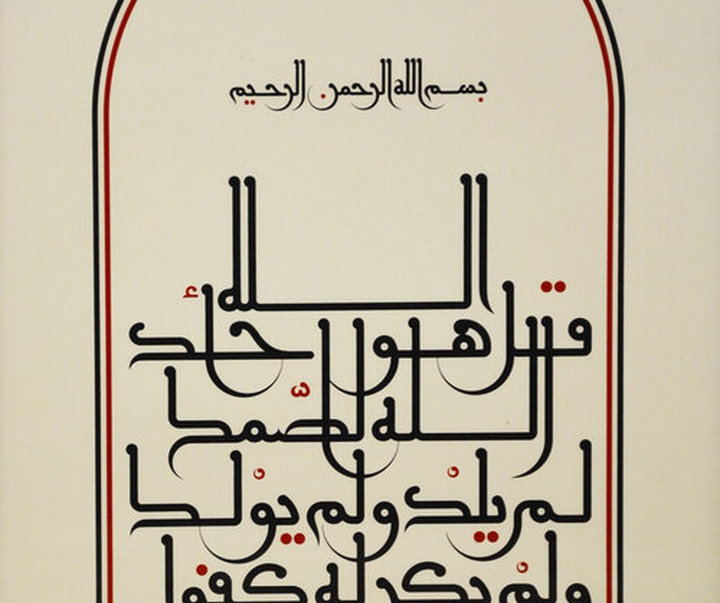 بسم الله الرحمن الرحيم
قل هو الله أحد
الله الصّمد
لم يلدْ ولم يولْد
ولمْ يكن له كفوا